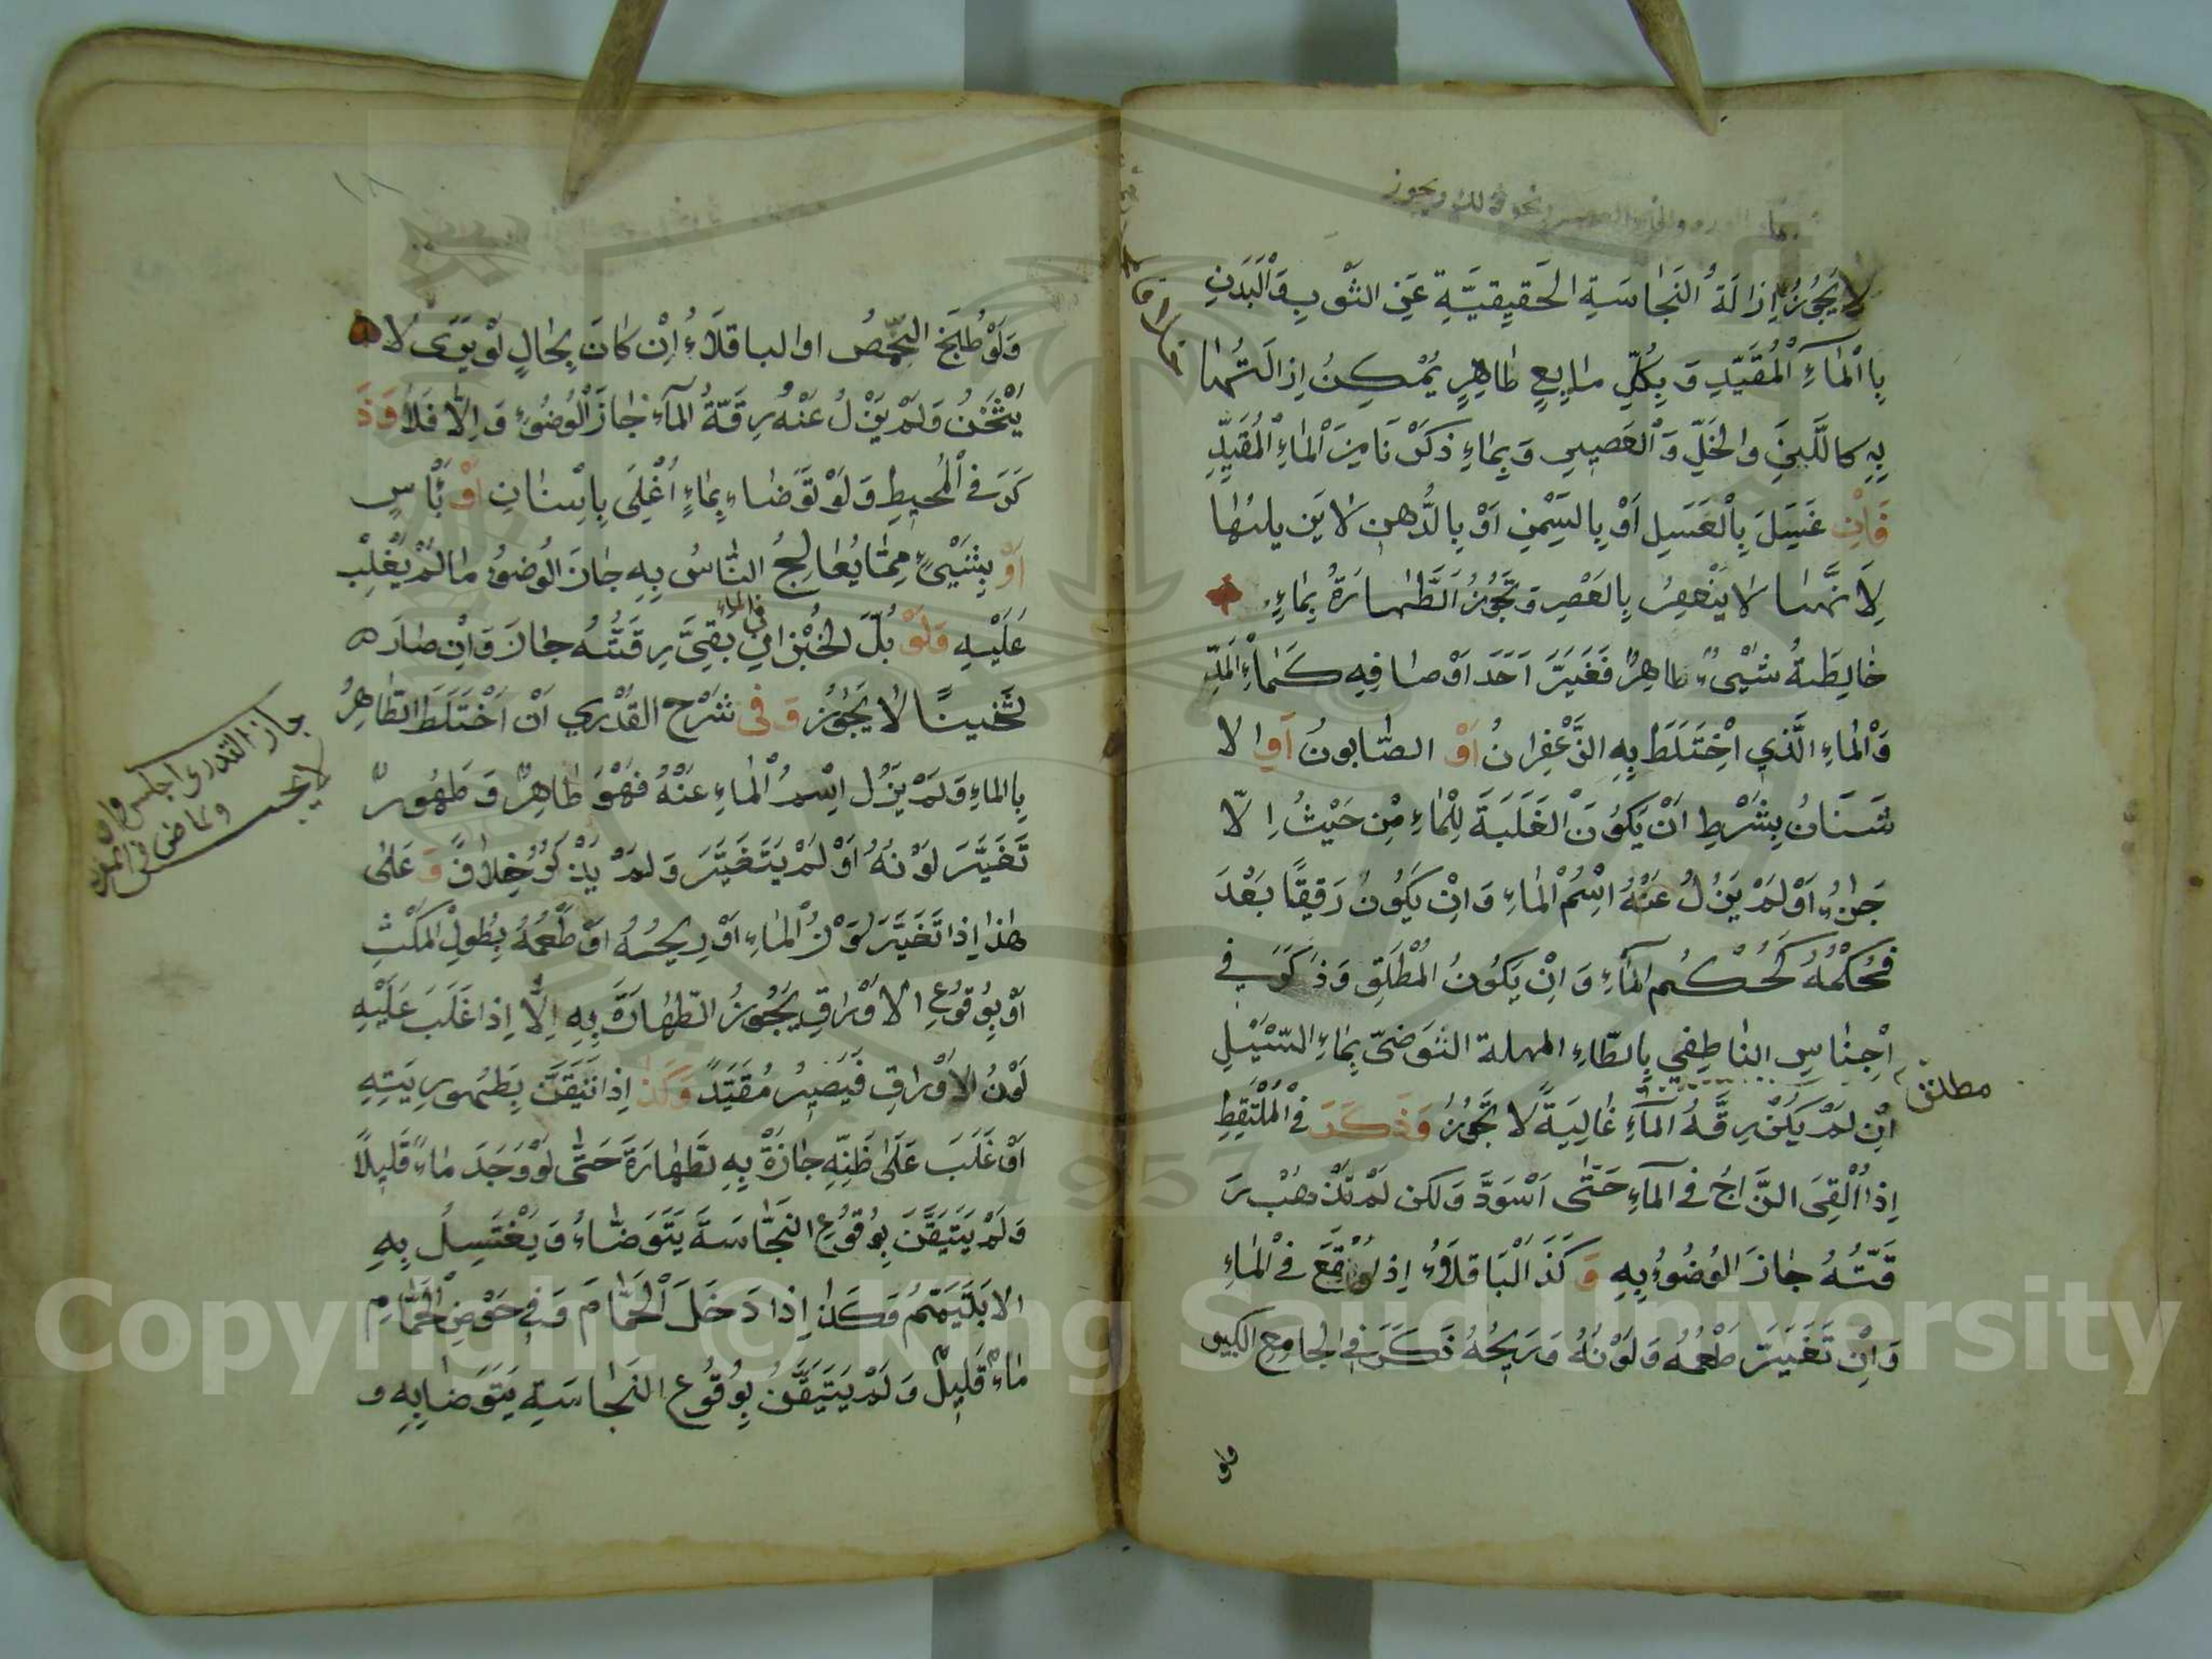 ونحو ذلك ويجوز
لَا يَجُوزُ اِزَالَةُ النَّجَاسَةِ الْحَقِيقِيَّةِ عَنِ الثَّوبِ وَالْبَدَنِ
بِاالْمَاءِ الْمُقَيَّدِ وَ بِكُلِّ مايعٍ طَاهِرٍ يُمْكِنُ اِزالَتُهَا
بِهِ كاللَّبَنِ والخَلِّ وَالْعَصِيرِ وَبِمَاءِ ذكَرْنَا مِنَ الْمَاءِ الْمُقَيَّدِ
فَاِنْ غَسَلَ بِالْعَسَلِ اَوْ بِالسَّمْنِ اَوْ بِالدُّهنِ لا يَزيلها
لِاَنَّهَا لا يَنْعَصِرُ بِالعَصْرِ وَ تَجُوزُ الطَّهَارَةُ بِمَاءٍ
خَالِطَهُ شَيْئٌ طاهِرٌ فَغَيَّرَ اَحَدَ اَوْصافِهِ كَمَاءِ الْمَدِّ
وَالْمَاءِ الَّذِي اخْتَلَطَ بِهِ الزَّعْفِرانُ اَوْ الصَّابونُ اَوِ الا
شنَانُ بِشَرْطِ اَنْ يَكُونَ الْغَلَبَةَ لِلْمَاءِ مِنْ حَيْثُ اِلّا
جَزاءِ اَوْ لَمْ يَزُلْ عَنْهُ اِسْمُ الْمَاءِ وَاِنْ يَكُونُ رَقِيقًا بَعْدَ
فَحُكْمُهُ كَحُكْمِ الْمَآءِ وَ اِنْ يَكُونُ المُطْلَقِ وَذَكَرَ فِي
مطلق
اَجْنَاسِ الناطِفِي بِالطَّاءِ المهملة التوَضىّ بِمَاءِ السَّيْلِ
اِنْ لَمْ يَكُنْ رِقَّهُ الْمَآءِ غَالِبَةً لَا تَجُوزُ وَذَكَرَ فِي الْمُلْتَقِطِ
اِذا اُلْقِيَ الزَّاجُ فِي الْمَآءِ حَتّى اَسْوَدَّ وَلكن لَمْ تَذْهبْ رِ
قَّتُهُ جَازَ الوُضُوءُ بِهِ وَ كَذَ الْبَاقلاَءُ اِذ لوْقَعَ فِي الْمَاءِ
وَاِنْ تَغَيَّرَ طَعْمُهُ وَلَوْنُهُ وَرِيحُهُ ذَكَرَ فِي الجامِعِ الكبير
ولو
١٨
وَلَوْ طُبَخَ الحِمَّصُ اوالباقلاَءُ اِنْ كَانَ بِحَالٍ لَوْ بَرَدَ لا
يَثْخَنُ وَلَمْ يَزُلْ عَنْهُ رِقَّةُ الْمَآءِ جَازَ الْوُضُوُء وَ اِلَّا فَلَا وَذَ
كَرَ فِي الْمُحِيطِ وَلَوْ تَوَضاءِ بِمَاءٍ اُغْلِىَ بِاسنانٍ اَوْ بَأْسٍ
اَوْ بِشَيْئٍ مِمَّا يُعَالِجُ النَّاسُ بِهِ جَازَ الوُضوُءُ مَالَمْ يَغْلِبْ
عَلَيْهِ وَلَوْ بُلَّ الخُبْزُ اِنْ بَقِيَ رِقَّتُهُ جَازَ وَاِنْ صَارَ
في الماء
ثَخينًا لا يَجُوزُ وَ فِى شَرْحِ القُدْرِي اَنْ اخْتَلَطَ الطَّاهِرُ
بِاالماءِ وَلَمْ يَزُل اِسْمُ الْمَاءِ عَنْهُ فَهُوَ طَاهِرٌ وَ طَهُورٌ
تَغَيَّرَ لَوْنُهُ اَوْ لَمْ يَتَغَيَّرَ وَلَمْ يَذْكُرْ خِلَافً وَ عَلَى
هَذا اِذا تَغَيَّرَ لَوْنُ الْمَاءِ اَوْ رِيحُهُ اوْ طَعْمُهُ بِطُولِ الْمَكْثِ
اَوْ بِوُقوُعِ الاَوْرَاقِ يَجُوزُ الطَّهَارَةَ بِهِ اِلّا اِذا غَلَبَ عَلَيْهِ
لَوْنُ الاَوْرَاقِ فَيَصِيرُ مُقَيَّدً وَكَذَا اِذا تَيَقَّنَ بِطَهورِيَتِهِ
اَوْ غَلَبَ عَلَى ظَنِّهِ جازَةْ بِهِ لطَّهَارَةَ حَتَّى لَوْ وَجَدَ مَاءً قَلِيلاً
وَلَمْ يَتَيَقَّنَ بِوُقُوعِ النَّجَاسَةَ يَتَوَضَّاءُ وَ يَغْتَسِلُ بِهِ
الا بَلَتَيَمَّمُ وَكَذَا اِذا دَخَلَ الْحَمَّامَ وَ فِي حَوْضِ الْحَمَّامِ
مَاءٌ قَلِيلٌ وَلَمْ يَتَيَقَّنُ بِوُقُوعِ النَّجَاسَةِ يَتَوَضا بِهِ و
Copyright © King Saud University
1957